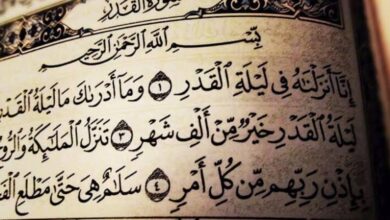 سُورَةُ الْقَدْرِ
بِسْمِ اللَّهِ الرَّحْمَٰنِ الرَّحِيمِ
إِنَّا أَنزَلْنَاهُ فِي لَيْلَةِ الْقَدْرِ ١ وَمَا أَدْرَاكَ مَا لَيْلَةُ الْقَدْرِ
لَيْلَةُ الْقَدْرِ خَيْرٌ مِّنْ أَلْفِ شَهْرٍ ٣ تَنَزَّلُ الْمَلَائِكَةُ وَالرُّوحُ
بِإِذْنِ رَبِّهِم مِّن كُلِّ أَمْرٍ ٤ سَلَامٌ هِيَ حَتَّىٰ مَطْلَعِ